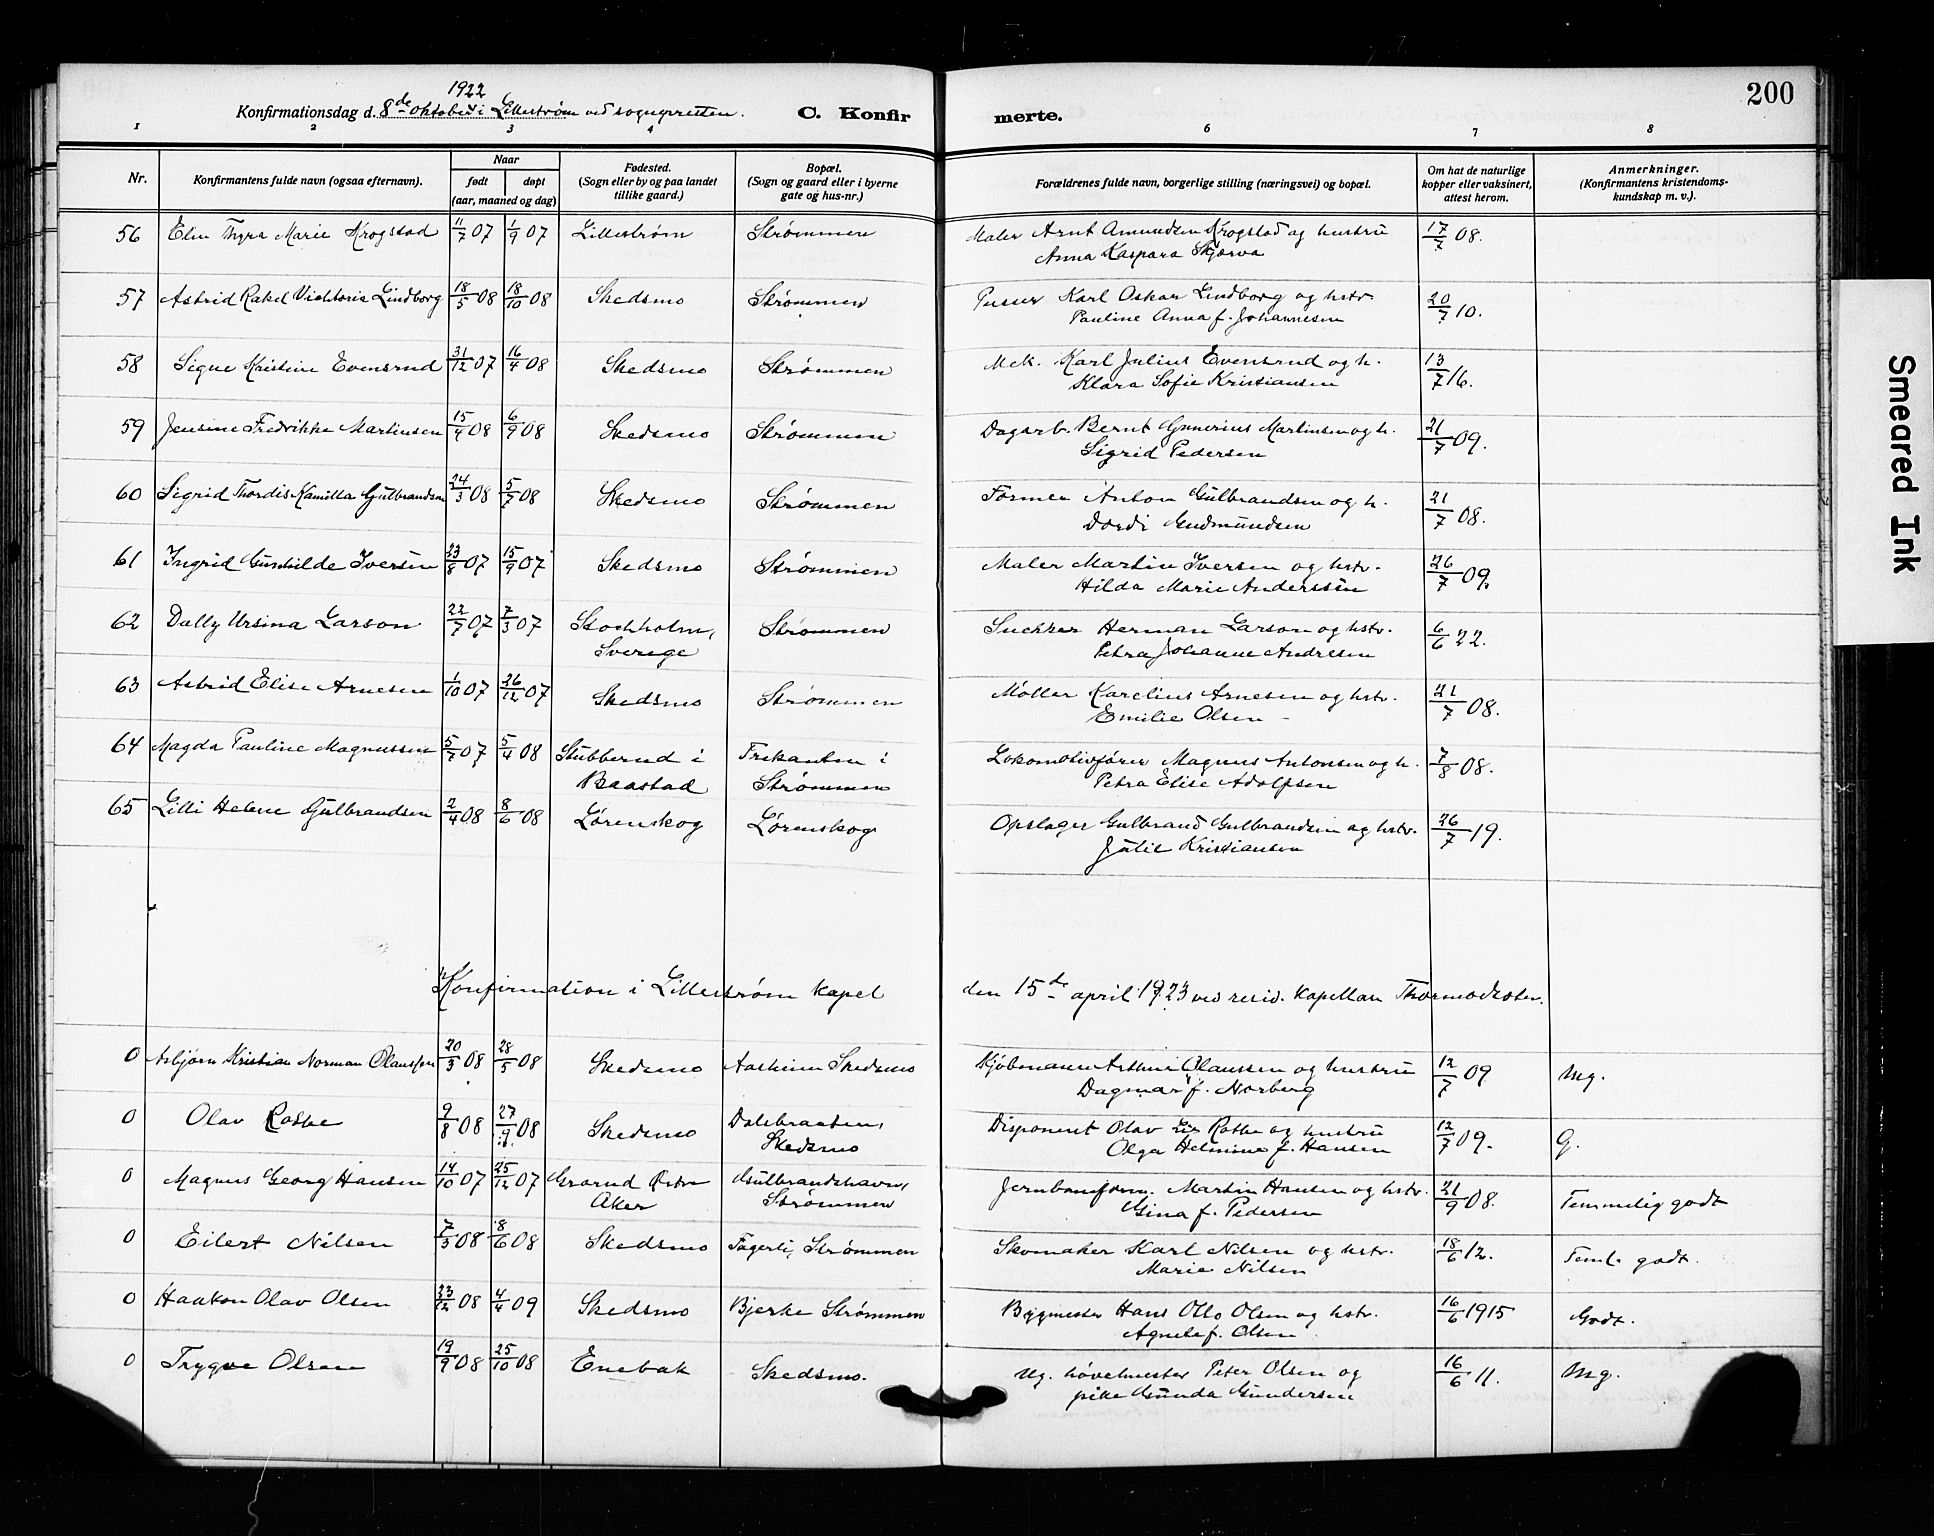 200
1922
Konfirmationsdag d. 8de oktober i Lillestrøm ved sognepresten.
C. Konfirmerte.
1 2 3 4 6 7 8
Nr.
Konfirmantens fulde navn (ogsaa efternavn).
Naar
født
døpt
(aar, maaned og dag)
Fødested.
(Sogn eller by og paa landet
tillike gaard.)
Bopæl.
(Sogn og gaard eller i byerne
gate og hus-nr.)
Forældrenes fulde navn, borgerlige stilling (næringsvei) og bopæl.
Om hat de naturlige
kopper eller vaksinert,
attest herom.
Anmerkninger.
(Konfirmantens kristendoms-
kundskap m. v.).
56 Elin Thyra Marie Krogstad 11/7 07 1/9 07 Lillestrøm Strømmen Maler Arnt Amundsen Krogstad og hustru 17/7 08.
Anna Kaspara Skjørva
57 Astrid Rakel Vichtoria Lindborg 18/5 08 18/10 08 Skedsmo Strømmen Pusser Karl Oskar Lindborg og hstr. 20/7 10.
Pauline Anna f. Johannesen
58 Signe Kristine Evensrud 31/12 07 16/4 08 Skedsmo Strømmen Mek. Karl Julius Evensrud og h. 13/7 16.
Klara Sofie Kristiansen
59 Jensine Fredrikke Martinsen 15/4 08 6/9 08 Skedsmo Strømmen Dagarb. Bernt Gunerius Martinsen og h. 21/7 09.
Sigrid Pedersen
60 Sigrid Thordis Kamilla Gulbrandsen 24/3 08 5/7 08 Skedsmo Strømmen Former Anton Gulbrandsen og h. 21/7 08.
Dordi Gudmundsen
61 Ingrid Gunhilde Iversen 23/8 07 15/9 07 Skedsmo Strømmen Maler Martin Iversen og hstr. 26/7 09.
Hilda Marie Anderssen
62 Dally Ursina Larson 22/7 07 7/3 07 Stockholm, Strømmen Snekker Herman Larson og hstr. 6/6 22.
Sverige Petra Johanne Andresen
63 Astrid Elise Arnesen 1/10 07 26/12 07 Skedsmo Strømmen Møller Karelius Arnesen og hstr. 21/7 08.
Emilie Olsen
64 Magda Pauline Magnussen 5/7 07 5/4 08 Stubberud i Trekanten i Lokomotivfører Magnus Antonsen og h. 7/8 08.
Baastad Strømmen Petra Elise Adolfsen
65 Lilli Helene Gulbrandsen 2/4 08 8/6 08 Lørenskog Lørenskog Opslager Gulbrand Gulbrandsen og hstr. 26/7 19.
Julie Kristiansen
Konfirmation i Lillestrøm kapel den 15de april 1923 ved resid. kapellan Thormodsæter.
0 Asbjørn Kristian Norman Olaussen 20/3 08 28/5 08 Skedsmo Aasheim Skedsmo Kjøbmann Arthur Olaussen og hustru 12/7 09 Mg.
Dagmar f. Norberg
0 Olav Rasbe 9/8 08 27/9 08 Skedsmo Dalebraaten, Disponent Olav Rasbe og hustru 12/7 09. G.
Skedsmo Olga Helmine f. Hansen
0 Magnus Georg Hansen 14/10 07 25/12 07 Grorud Østre Gulbrandshavn, Jernbaneform. Martin Hansen og hstr. 21/9 08. Temmelig godt
Aker Strømmen Gina f. Pedersen
0 Eilert Nilsen 7/3 08 8/6 08 Skedsmo Fagerli, Strømmen Skomaker Karl Nilsen og hstr. 18/6 12. Teml. godt.
Marie Nilsen
0 Haakon Olav Olsen 23/12 08 4/4 09 Skedsmo Bjerke Strømmen Bygmester Hans Otto Olsen og hstr. 16/6 1915 Godt.
Agnete f. Olsen
0 Trygve Olsen 19/9 08 25/10 08 Enebak Skedsmo. Ug. høvelmester Peter Olsen og 16/6 11. Mg.
pike Gunda Gundersen
Smeared Ink